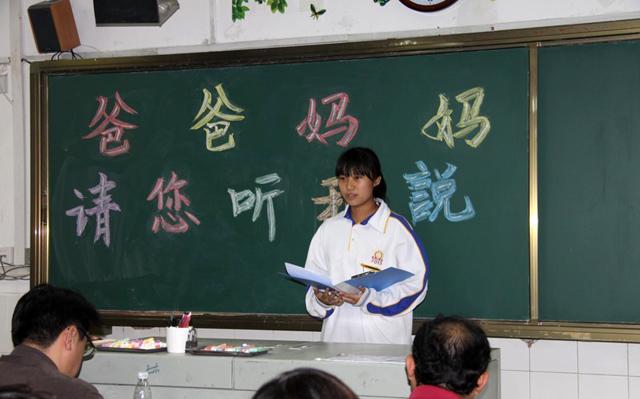 爸爸妈妈
请您听我說